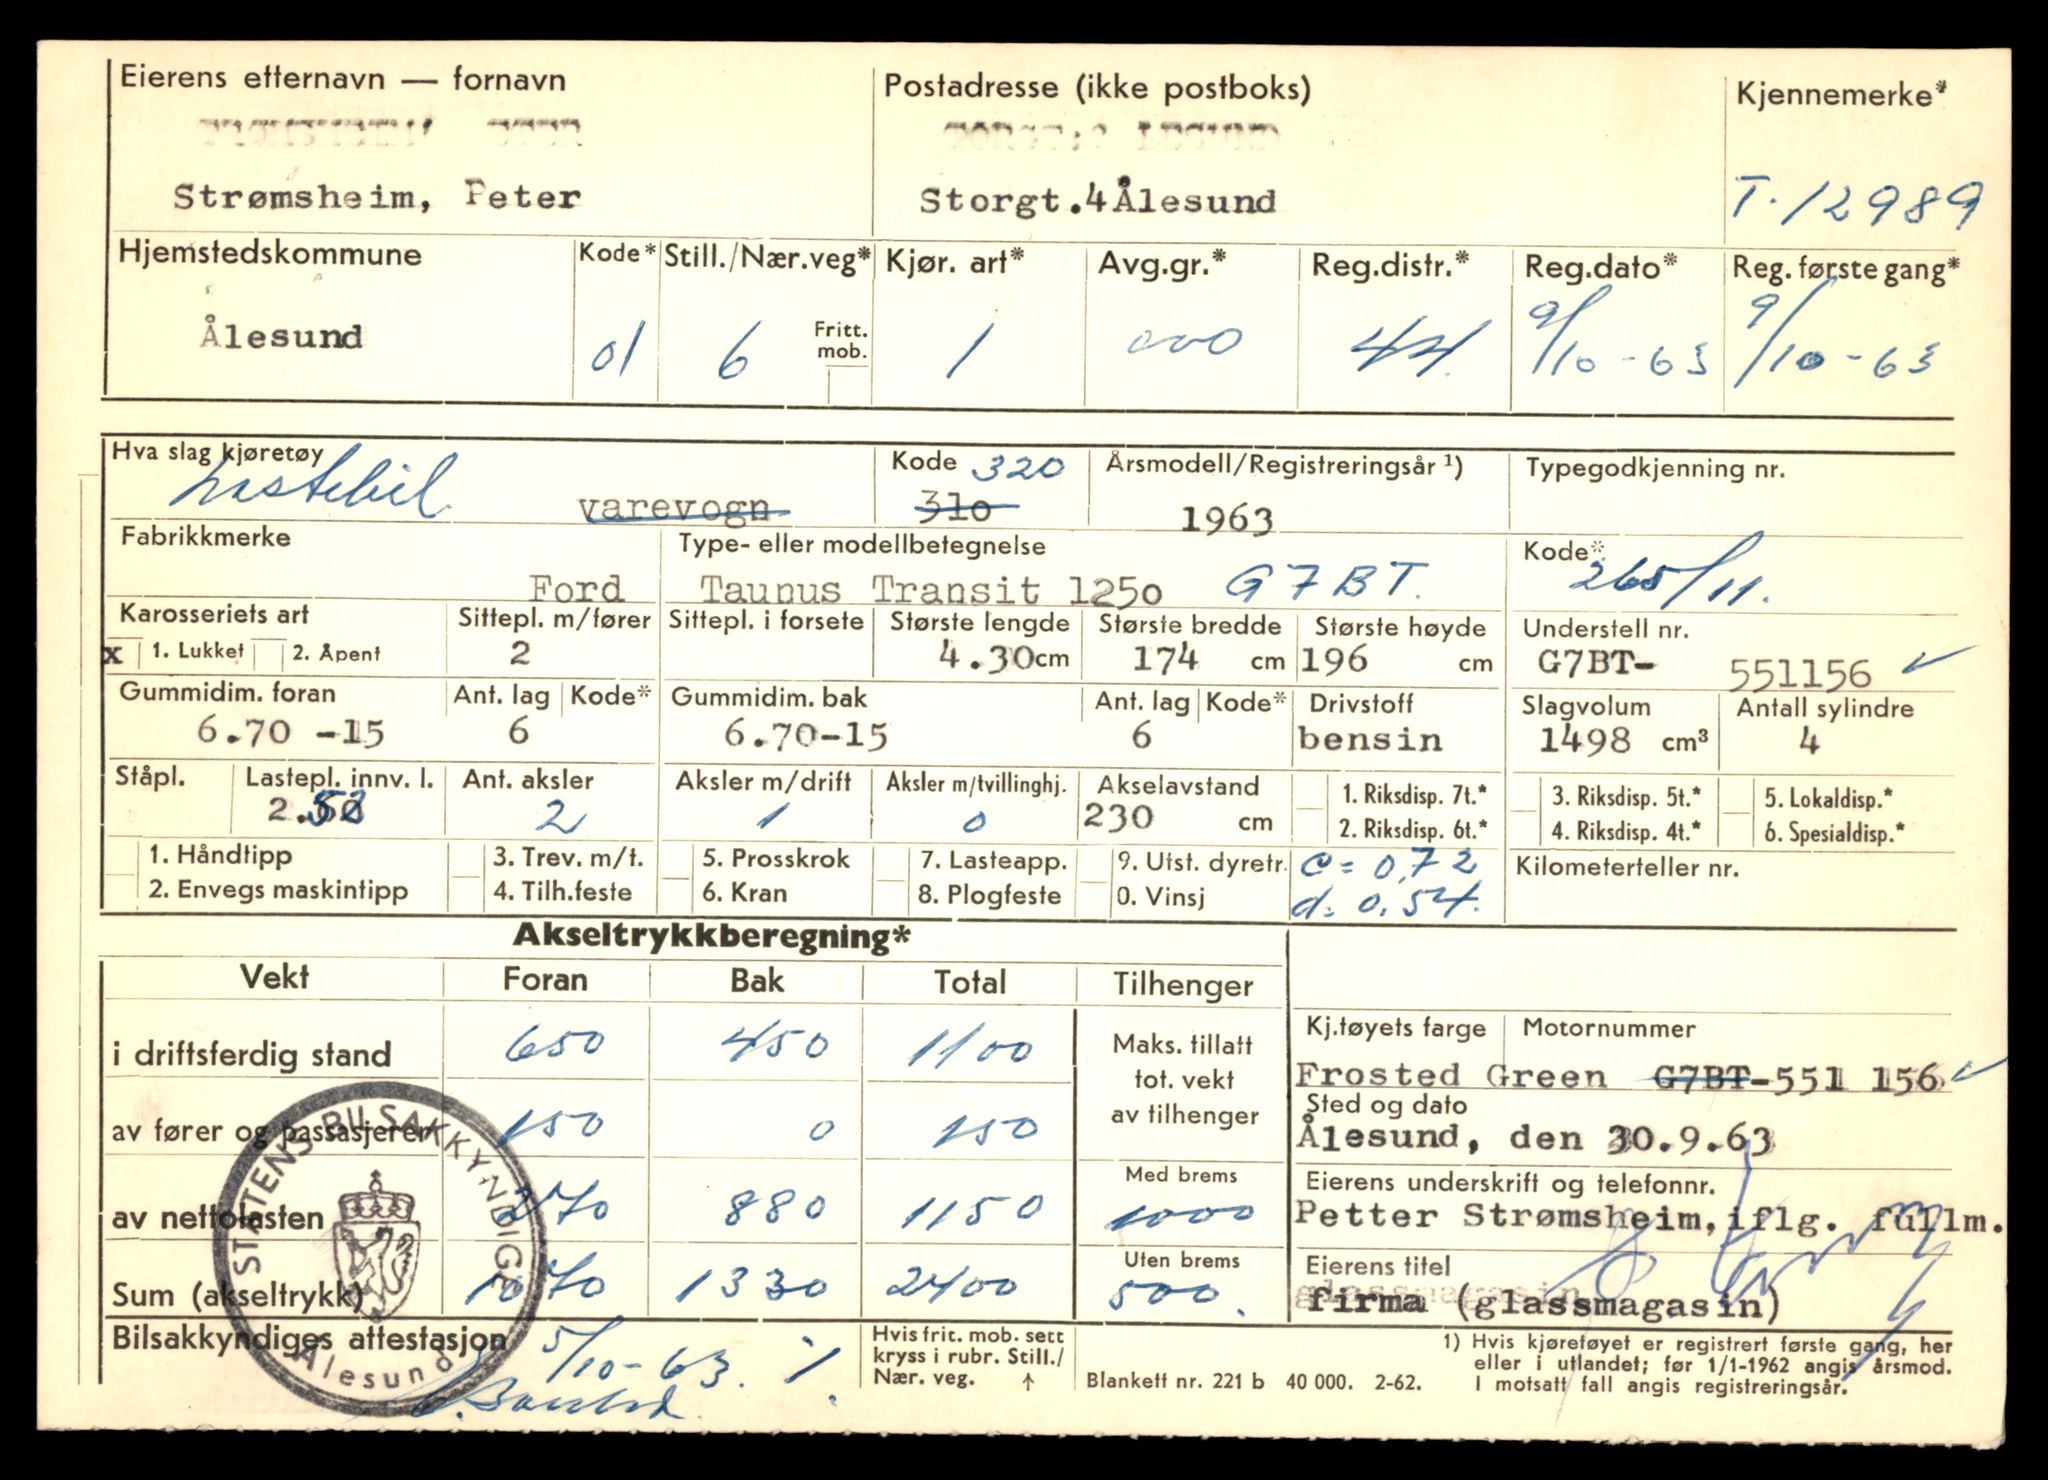 Eierens etternavn — fornavn
Postadresse (ikke postboks)
Kjennemerke*
Strømsheim, Peter
Storgt.4Ålesund
T.12989
Hjemstedskommune
Kode*
Still./Nær.veg*
Kjør. art*
Avg.gr.*
Reg.distr.*
Reg.dato*
Reg. første gang*
Ålesund
01
6
Fritt. mob.
1
000
44.
9/10-63
9/10-63
Hva slag kjøretøy
Kode 320
Årsmodell/Registreringsår ¹)
Typegodkjenning nr.
Lastebil. varevogn
310
1963
Fabrikkmerke
Type- eller modellbetegnelse
Kode*
Ford
Taunus Transit 1250 G7BT.
265/11.
Karosseriets art
Sittepl. m/fører
Sittepl. i forsete
Største lengde
Største bredde
Største høyde
Understell nr.
x 1. Lukket 2. Åpent
2
4.30cm
174 cm
196 cm
G7BT- 551156
Gummidim. foran
Ant. lag
Kode*
Gummidim. bak
Ant. lag
Kode*
Drivstoff
Slagvolum
Antall sylindre
6.70 -15
6
6.70-15
6
bensin
1498 cm³
4
Ståpl.
Lastepl. innv. l.
Ant. aksler
Aksler m/drift
Aksler m/tvillinghj.
Akselavstand
1. Riksdisp. 7t.*
3. Riksdisp. 5t.*
5. Lokaldisp.*
2
1
0
230 cm
2. Riksdisp. 6t.*
4. Riksdisp. 4t.*
6. Spesialdisp.*
1. Håndtipp
3. Trev. m/t.
5. Prosskrok
7. Lasteapp.
9. Utst. dyretr.
c = 0,72
Kilometerteller nr.
2. Envegs maskintipp
4. Tilh.feste
6. Kran
8. Plogfeste
0. Vinsj
d = 0.54.
Akseltrykkberegning*
Vekt
Foran
Bak
Total
Tilhenger
Kj.tøyets farge
Motornummer
i driftsferdig stand
650
450
1100
Maks. tillatt
tot. vekt
av tilhenger
Frosted Green G7BT-551 156
Sted og dato
av fører og passasjerer
150
0
150
Ålesund, den 30.9.63
Med brems
Eierens underskrift og telefonnr.
av nettolasten
270
880
1150
1000
Petter Strømsheim, iflg. fullm.
Uten brems
Eierens titel
Sum (akseltrykk)
1070
1330
2400
500.
firma (glassmagasin)
Bilsakkyndiges attestasjon
5/10-63.
STATENS BILSAKKYNDIGE
Ålesund
Hvis frit. mob. sett
kryss i rubr. Still./
Nær. veg. ↑
Blankett nr. 221 b 40 000. 2-62.
1) Hvis kjøretøyet er registrert første gang, her
eller i utlandet; før 1/1-1962 angis årsmod.
I motsatt fall angis registreringsår.